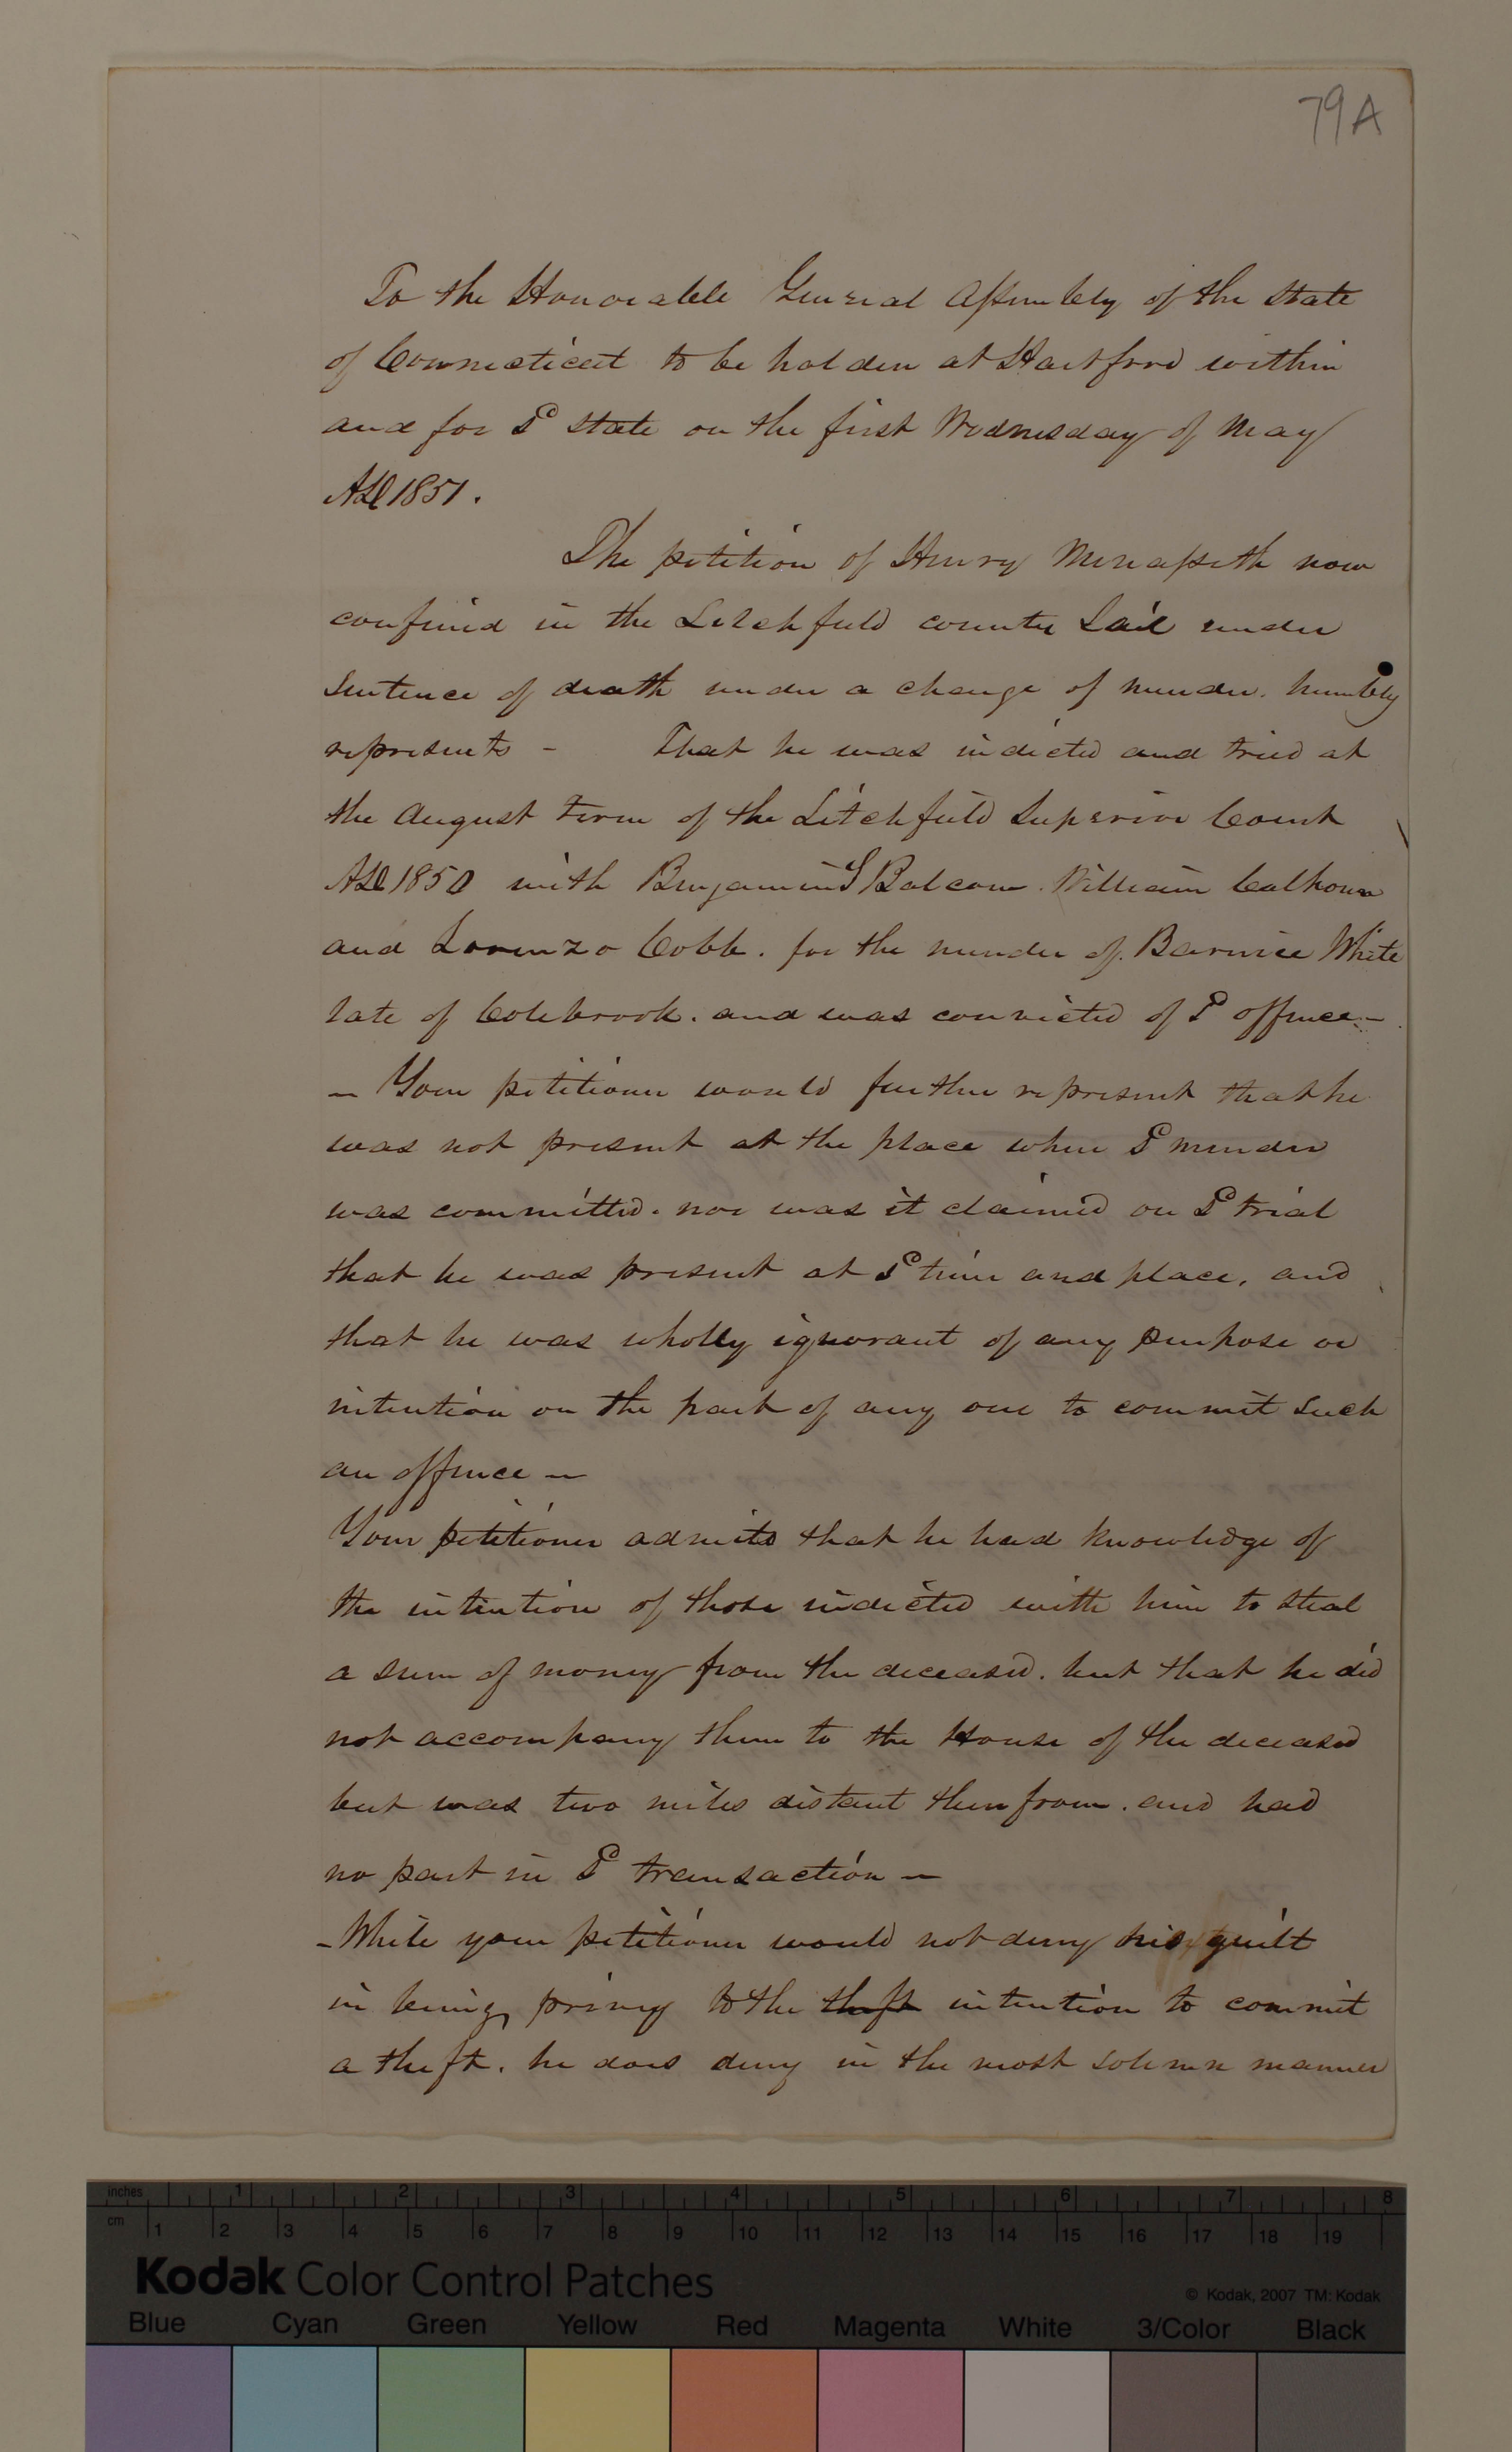 79A
To the Honorable General Assembly of the State
of Connecticut to be holden at Hartford within
and for Sd State on the first Wednesday of May
AD 1851.
The petition of Henry Menasseth now
confined in the Litchfield county Jail under
Sentence of death under a charge of murder. humbly
represents - That he was indicted and tried at
the August Term of the Litchfield Superior Court
AD 1850 with Benjamin S Balcom. William Calhoun
and Lorenzo Cobb. for the murder of Barnice White
late of Colebrook. and was convicted of Sd offence -
- Your petitioner would further represent that he
was not present at the place when Sd murder
was committed. nor was it claimed on Sd trial
that he was present at Sd time and place, and
that he was wholly ignorant of any purpose or
intention on the part of any one to commit such
an offence -
Your petitioner admits that he had knowledge of
the intention of those indicted with him to steal
a sum of money from the deceased. but that he did
not accompany them to the House of the deceased
but was two miles distant therefrom. and had
no part in Sd transaction -
- While your petitioner would not deny his guilt
in being privy to the theft intention to commit
a theft. he does deny in the most solemn manner
inches 1 2 3 4 5 6 7 8
cm 1 2 3 4 5 6 7 8 9 10 11 12 13 14 15 16 17 18 19
Kodak Color Control Patches
© Kodak, 2007 TM: Kodak
Blue Cyan Green Yellow Red Magenta White 3/Color Black